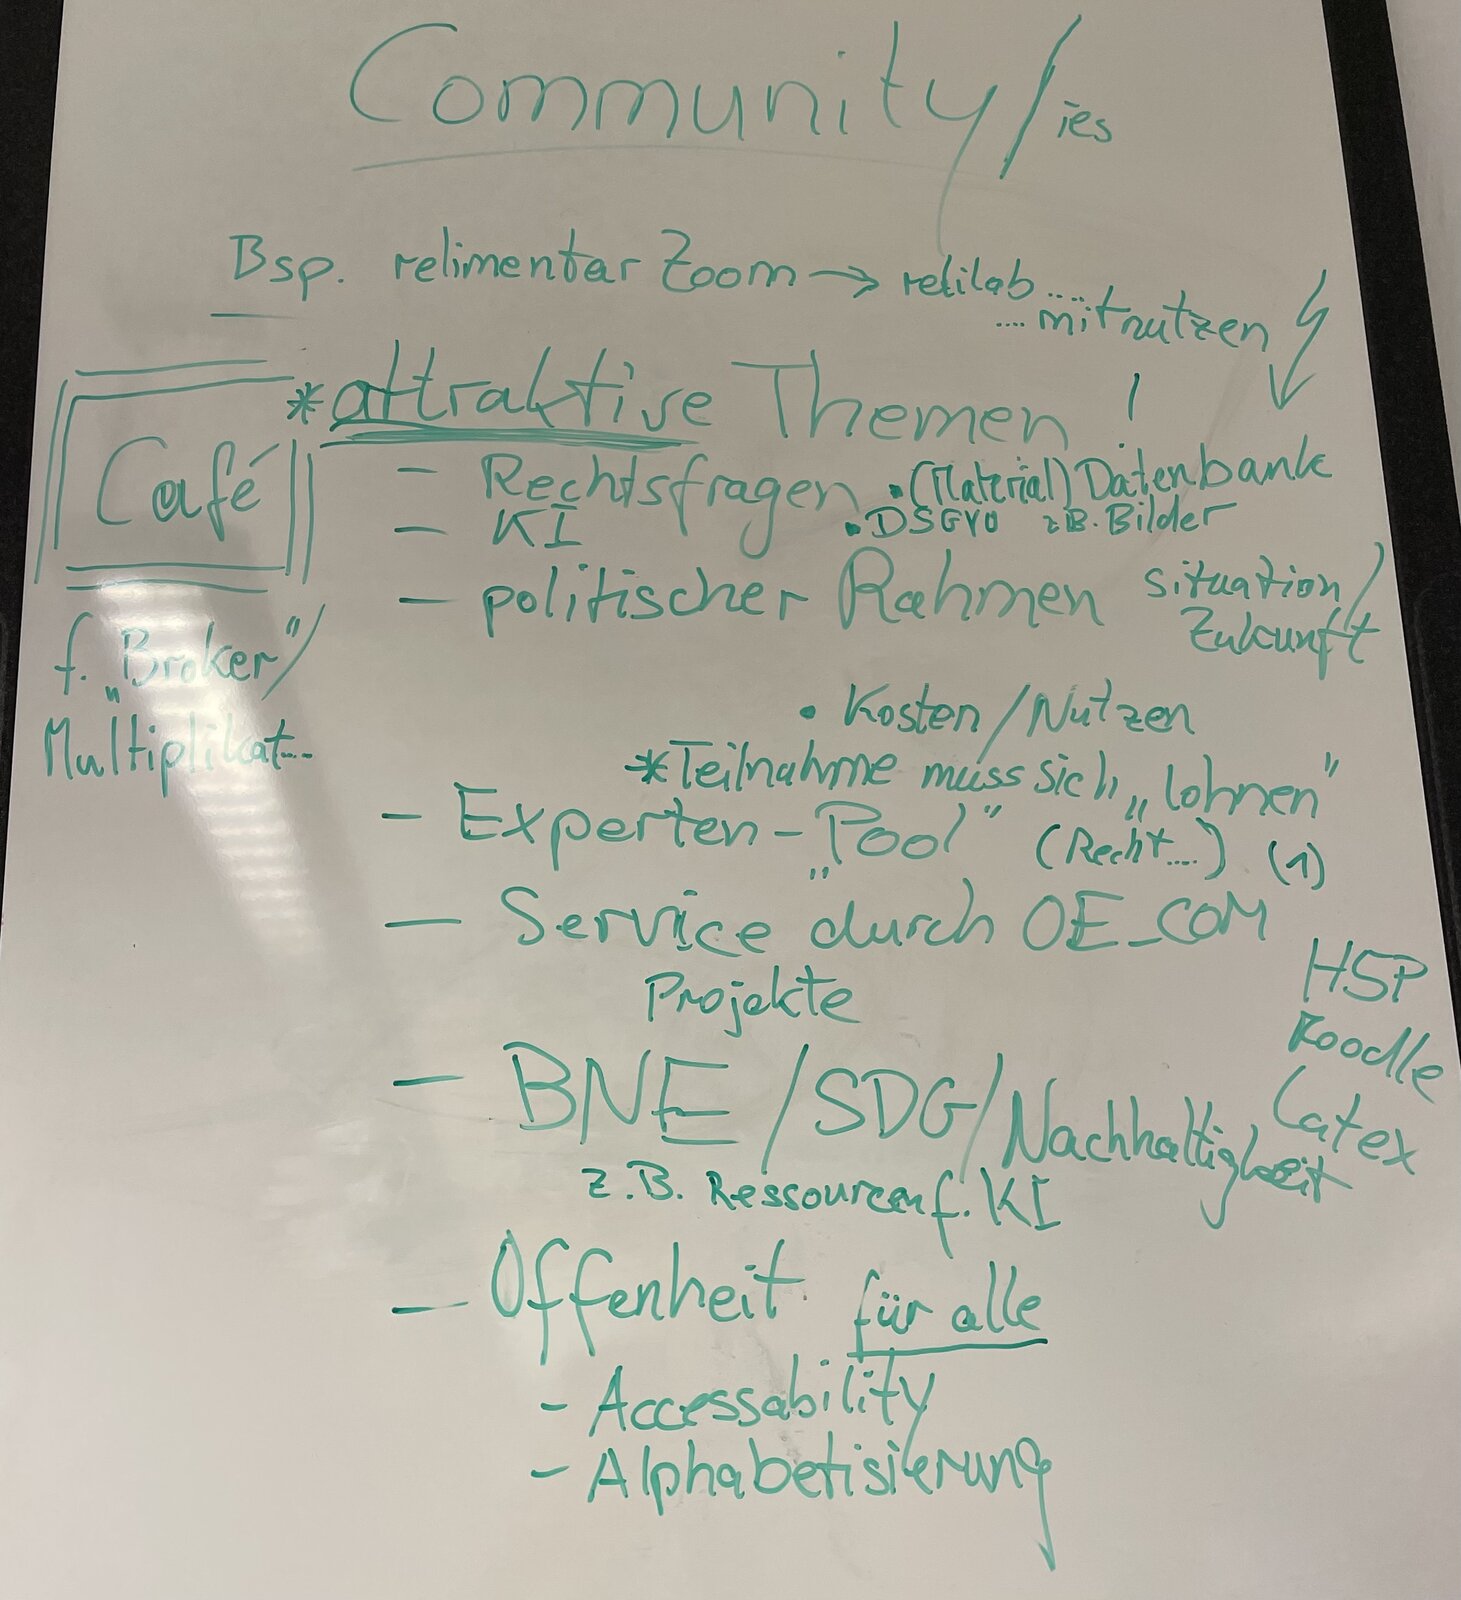 Community/ies
Bsp. relimentar Zoom → relilab ....
.... mitnutzen
* attraktive Themen !
Café
f. „Broker"/
Multiplikat...
- Rechtsfragen • (Material) Datenbank
- KI • DSGVO z.B. Bilder
- politischer Rahmen situation/
Zukunft
• Kosten/Nutzen
* Teilnahme muss sich „lohnen"
- Experten-„Pool" (Recht....) (1)
- Service durch OE_COM
Projekte
H5P
Latex
- BNE/SDG/Nachhaltigkeit
z.B. Ressourcen f. KI
- Offenheit für alle
- Accessability
- Alphabetisierung